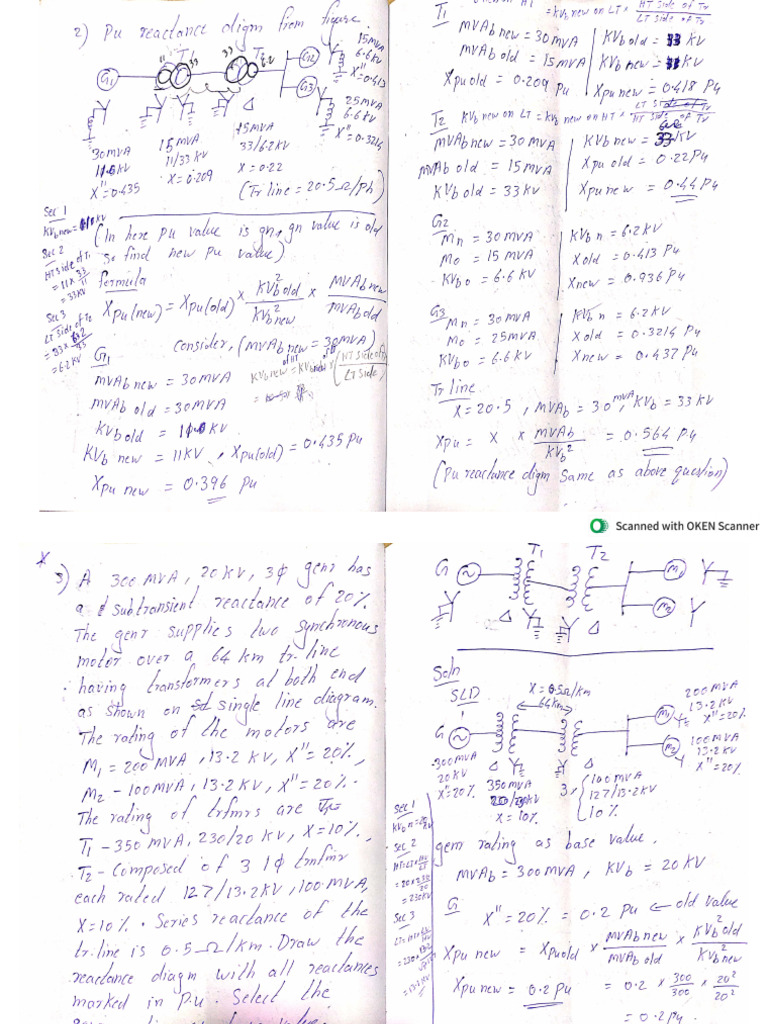 2) Pu reactance digm from figure.
T1
G1
G2
G3
11
33
33
6.2
15MVA
6.6KV
X"=0.413
25MVA
6.6KV
X"=0.3214
30MVA
X"=0.435
15MVA
11/33 KV
X=0.209
15MVA
33/6.2KV
X=0.22
(Tr line = 20.5Ω/Ph)
Sec 1
KVb new=
Sec 2
HT side of T1
= 11 x 33/11
= 33KV
Sec 3
LT side of T2
= 33 x 6.2/33
= 6.2 KV
(In here Pu value is gn, gn value is old
So find new pu value)
formula
Xpu(new) = Xpu(old) x KVb²old/KVb²new x MVAb new/MVAb old
Consider, (MVAb new = 30MVA)
G1
MVAb new = 30MVA
MVAb old = 30MVA
KVb old =
KVb new = 11KV, Xpu(old) = 0.435 Pu
Xpu new = 0.396 Pu
T1
MVAb new = 30MVA
MVAb old = 15MVA
Xpu old = 0.209 Pu
KVb old = KV
KVb new = KV
Xpu new = 0.418 Pu
T2 KVb new on LT = KVb new on HT x LT side of Tr/HT side of Tr
MVAb new = 30 MVA
MVAb old = 15 MVA
KVb old = 33 KV
KVb new = 33 KV
Xpu old = 0.22 Pu
Xpu new = 0.44 Pu
G2
Mn = 30 MVA
Mo = 15 MVA
KVbo = 6.6 KV
KVb n = 6.2 KV
Xold = 0.413 Pu
Xnew = 0.936 Pu
G3
Mn = 30 MVA
Mo = 25MVA
KVbo = 6.6KV
KVb n = 6.2 KV
Xold = 0.3214 Pu
Xnew = 0.437 Pu
Tr line
X = 20.5, MVAb = 30 MVA, KVb = 33 KV
Xpu = X x MVAb/KVb² = 0.564 Pu
(Pu reactance digm Same as above question)
Scanned with OKEN Scanner
3) A 300 MVA, 20KV, 3ϕ genr has
a subtransient reactance of 20%.
The genr supplies two synchronous
motor over a 64 km tr. line
having transformers at both end
as shown on single line diagram.
The rating of the motors are
M1 = 200 MVA, 13.2 KV, X"= 20%,
M2 - 100MVA, 13.2 KV, X"= 20%.
The rating of trfmrs are
T1 - 350 MVA, 230/20 KV, X=10%,
T2 - Composed of 3 1ϕ trnfmr
each rated 127/13.2KV, 100MVA,
X=10%. Series reactance of the
tr.line is 0.5 Ω/km. Draw the
reactance diagm with all reactances
marked in P.u. Select the
G
T1
T2
M1
M2
Soln
SLD
X = 0.5Ω/km
64km
G
M1
M2
200MVA
13.2KV
X"=20%
100MVA
13.2KV
X"=20%
300MVA
20KV
X"=20%
350MVA
X = 10%
3
100MVA
127/13.2KV
10%
Sec 1
Sec 2
Sec 3
genr rating as base value.
MVAb = 300MVA, KVb = 20 KV
G
X" = 20% = 0.2 Pu ← old value
Xpu new = Xpu old x MVAb new/MVAb old x KVb²old/KVb²new
Xpu new = 0.2 Pu = 0.2 x 300/300 x 20²/20²
= 0.2 Pu.